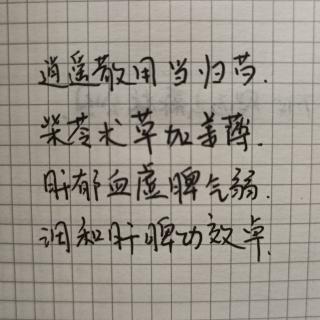 逍遥散用当归芍.
柴苓术草加姜薄.
肝郁血虚脾气弱.
调和肝脾功效卓.